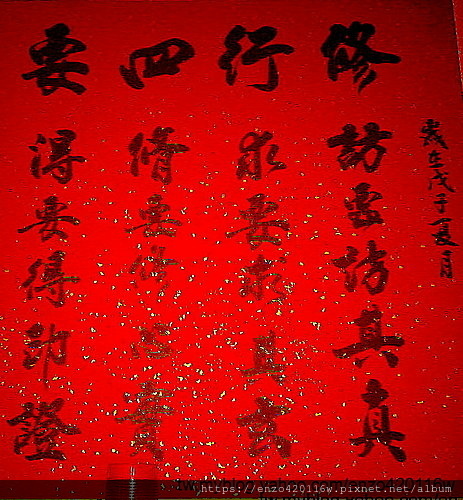 修行四要
歲在戊子夏月
訪要訪真真
求要求真玄
脩要修實
得要得印證
https://enzo420116w.pixnet.net/album